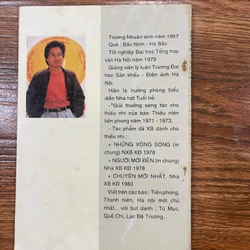 Trương Nhuận sinh năm 1957
Quê: Bắc Ninh - Hà Bắc
Tốt nghiệp Đại học Tổng hợp
văn Hà Nội năm 1979
Giảng viên lý luận Trường Đại
học Sân khấu - Điện ảnh Hà
Nội.
Hiện là trưởng phòng biểu
diễn Nhà hát Tuổi trẻ.
-"Giải thưởng sáng tác cho
thiếu nhi của báo Thiếu niên
tiền phong năm 1971 - 1973.
- Tác phẩm đã XB dành cho
thiếu nhi:
+ NHỮNG VÒNG SÓNG (in
chung) NXB KĐ 1978
+ NGƯỜI MỚI ĐẾN (in chung)
Nhà XB KĐ 1978
+ CHUYỆN MỚI NHẤT, Nhà
XB KĐ 1980
Viết trên các báo: Tiền phong,
Thanh niên, Hà nội mới chủ
nhật... với bút danh: Tú Mục,
Quế Chi, Lạc Đệ Trương...